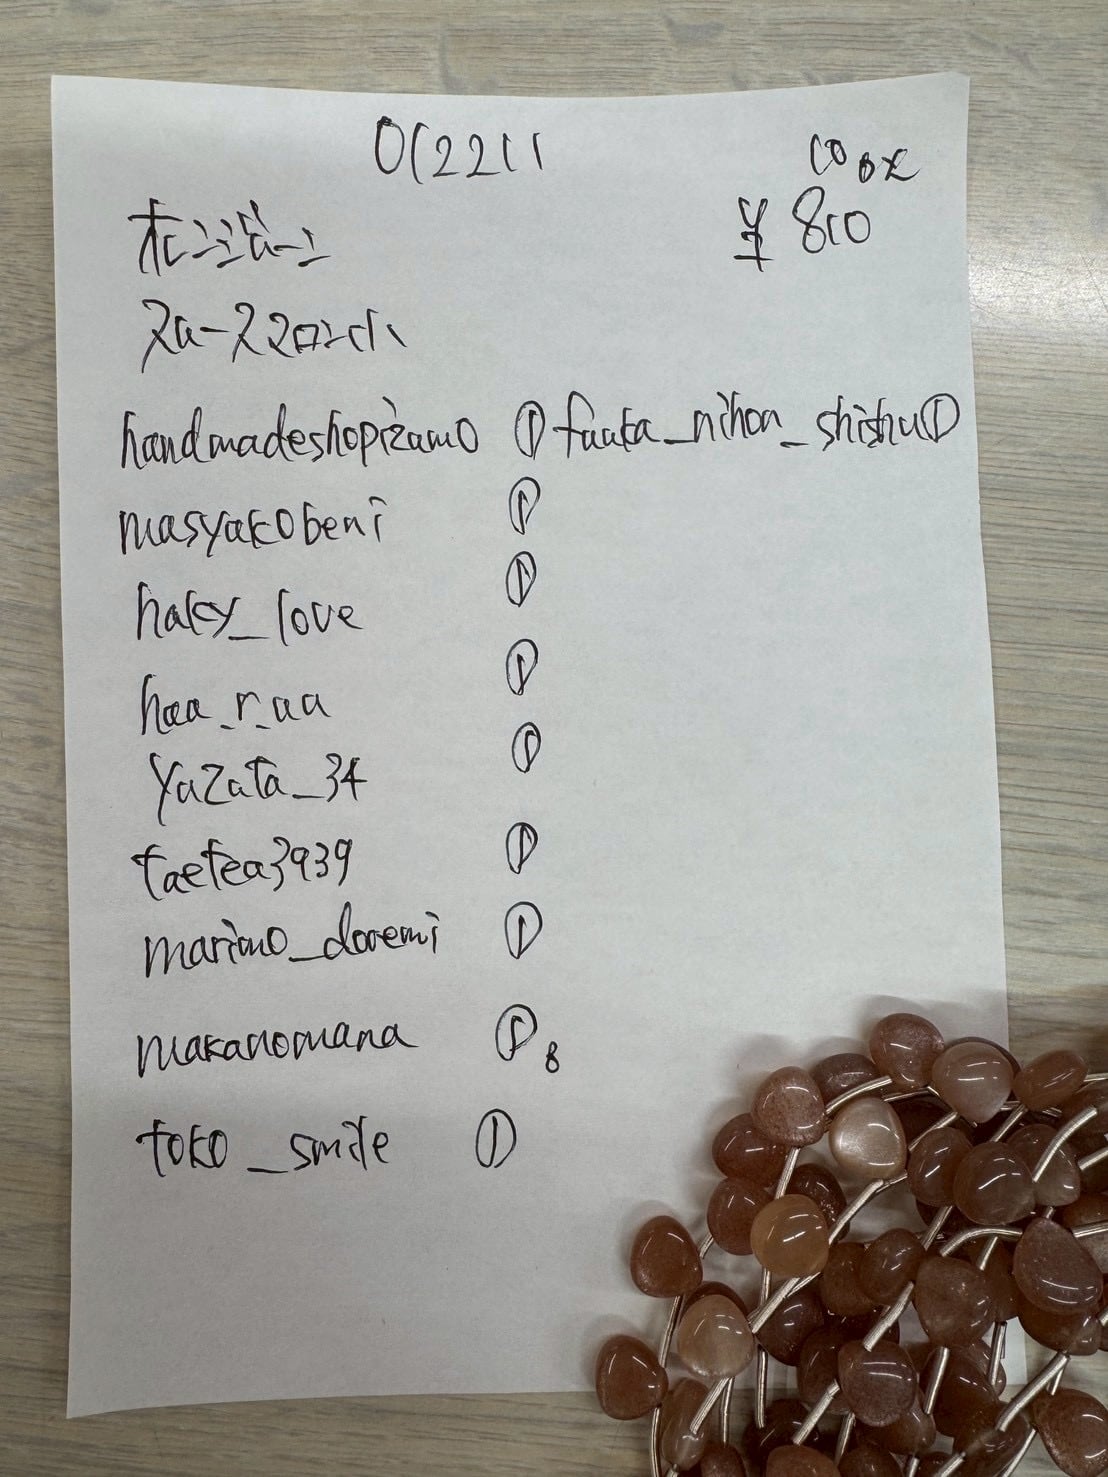 012211
¥ 810
handmadeshopizumo ① fuuka_nihon_shishu①
masyakobeni ①
haky_love ①
haa_r_aa ①
yazata_34 ①
taetea3939 ①
marimo_doremi ①
makanomana ① B
toko_smile ①